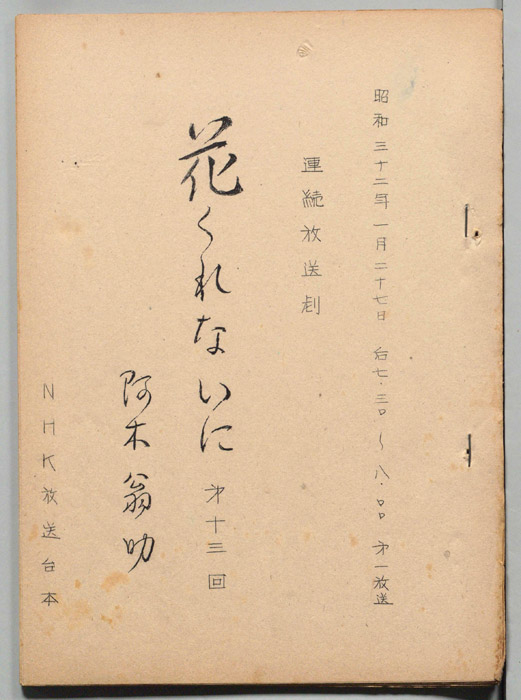 昭和三十二年一月二十七日 后七.三〇〜八.〇〇 第一放送
連続放送劇
花くれないに 第十三回
阿木翁助
NHK放送台本